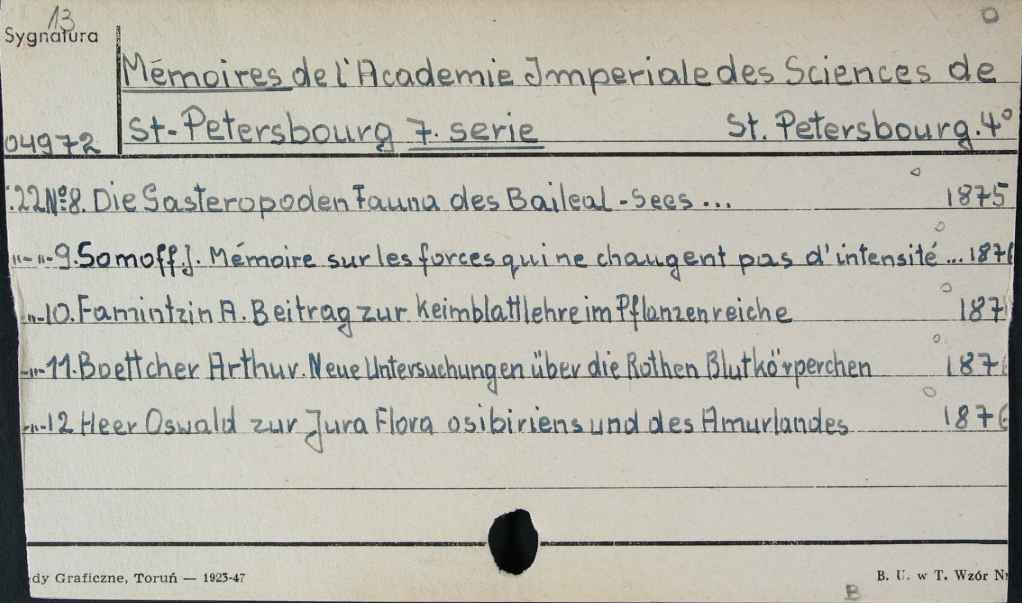 13
Sygnatura
Mémoires de l'Academie Imperiale des Sciences de
04972 St-Petersbourg 7. serie St. Petersbourg. 4°
.22 Nº8. Die Gasteropoden Fauna des Baileal-Sees ... 1875
"-"-9. Somoff. J. Mémoire sur les forces qui ne changent pas d'intensité ... 187
"-10. Famintzin A. Beitrag zur Keimblattlehre im Pflanzenreiche 187
-"-11. Boettcher Arthur. Neue Untersuchungen über die Rothen Blutkörperchen 187
-"-12 Heer Oswald zur Jura Flora osibiriens und des Amurlandes 1876
dy Graficzne, Toruń — 1925-47 B. U. w T. Wzór Nr
B